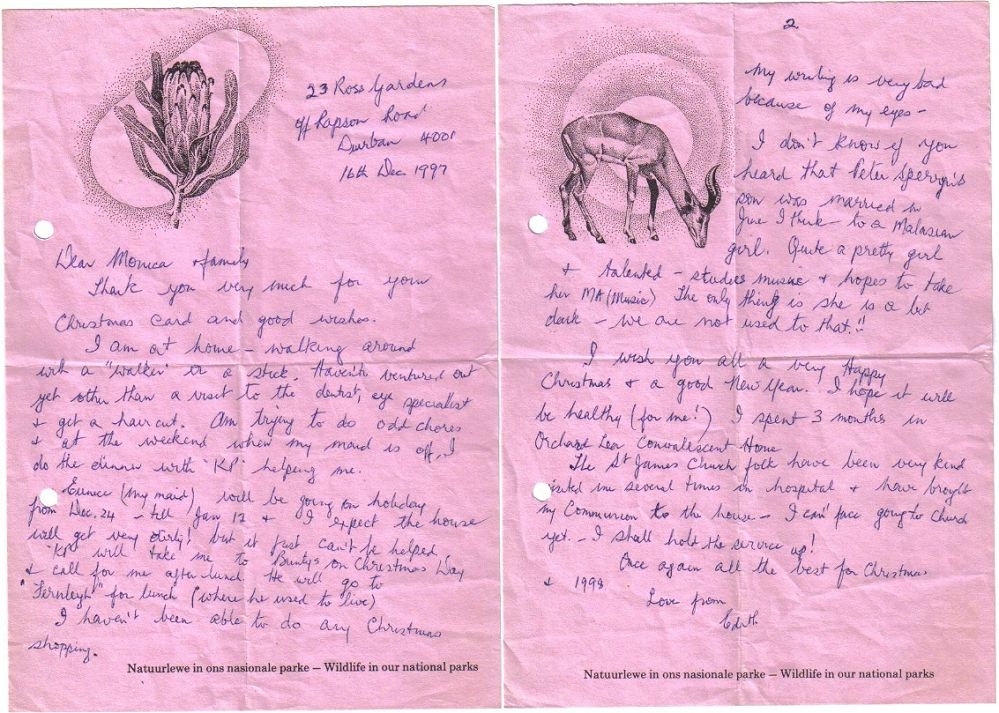 23 Ross Gardens
off Rapson Road
Durban 4001
16th Dec 1997
Dear Monica & family
Thank you very much for your
Christmas card and good wishes.
I am at home – walking around
with a "walker" or a stick. Haven't ventured out
yet other than a visit to the dentist, eye specialist
& get a haircut. Am trying to do odd chores
& at the weekend when my maid is off, I
do the dinner with 'KP' helping me.
Eunice (my maid) will be going on holiday
from Dec. 24 – till Jan 12 & I expect the house
will get very dirty! but it just can't be helped.
'KP' will take me to Bunty's on Christmas Day
& call for me after lunch. He will go to
"Fernleigh" for lunch (where he used to live)
I haven't been able to do any Christmas
shopping.
Natuurlewe in ons nasionale parke – Wildlife in our national parks
2
My writing is very bad
because of my eyes –
I don't know if you
heard that Peter
son was married in
June I think – to a Malasian
girl. Quite a pretty girl
& talented – studies music & hopes to take
her MA (Music) The only thing is she is a bit
dark – we are not used to that!!
I wish you all a very Happy
Christmas & a good New Year. I hope it will
be healthy (for me!) I spent 3 months in
Orchard Convalescent Home
The St James Church folk have been very kind
me several times in hospital & have brought
my Communion to the house – I can't face going to Church
yet. – I shall hold the service up!
Once again all the best for Christmas
& 1998.
Love from
Edith
Natuurlewe in ons nasionale parke – Wildlife in our national parks